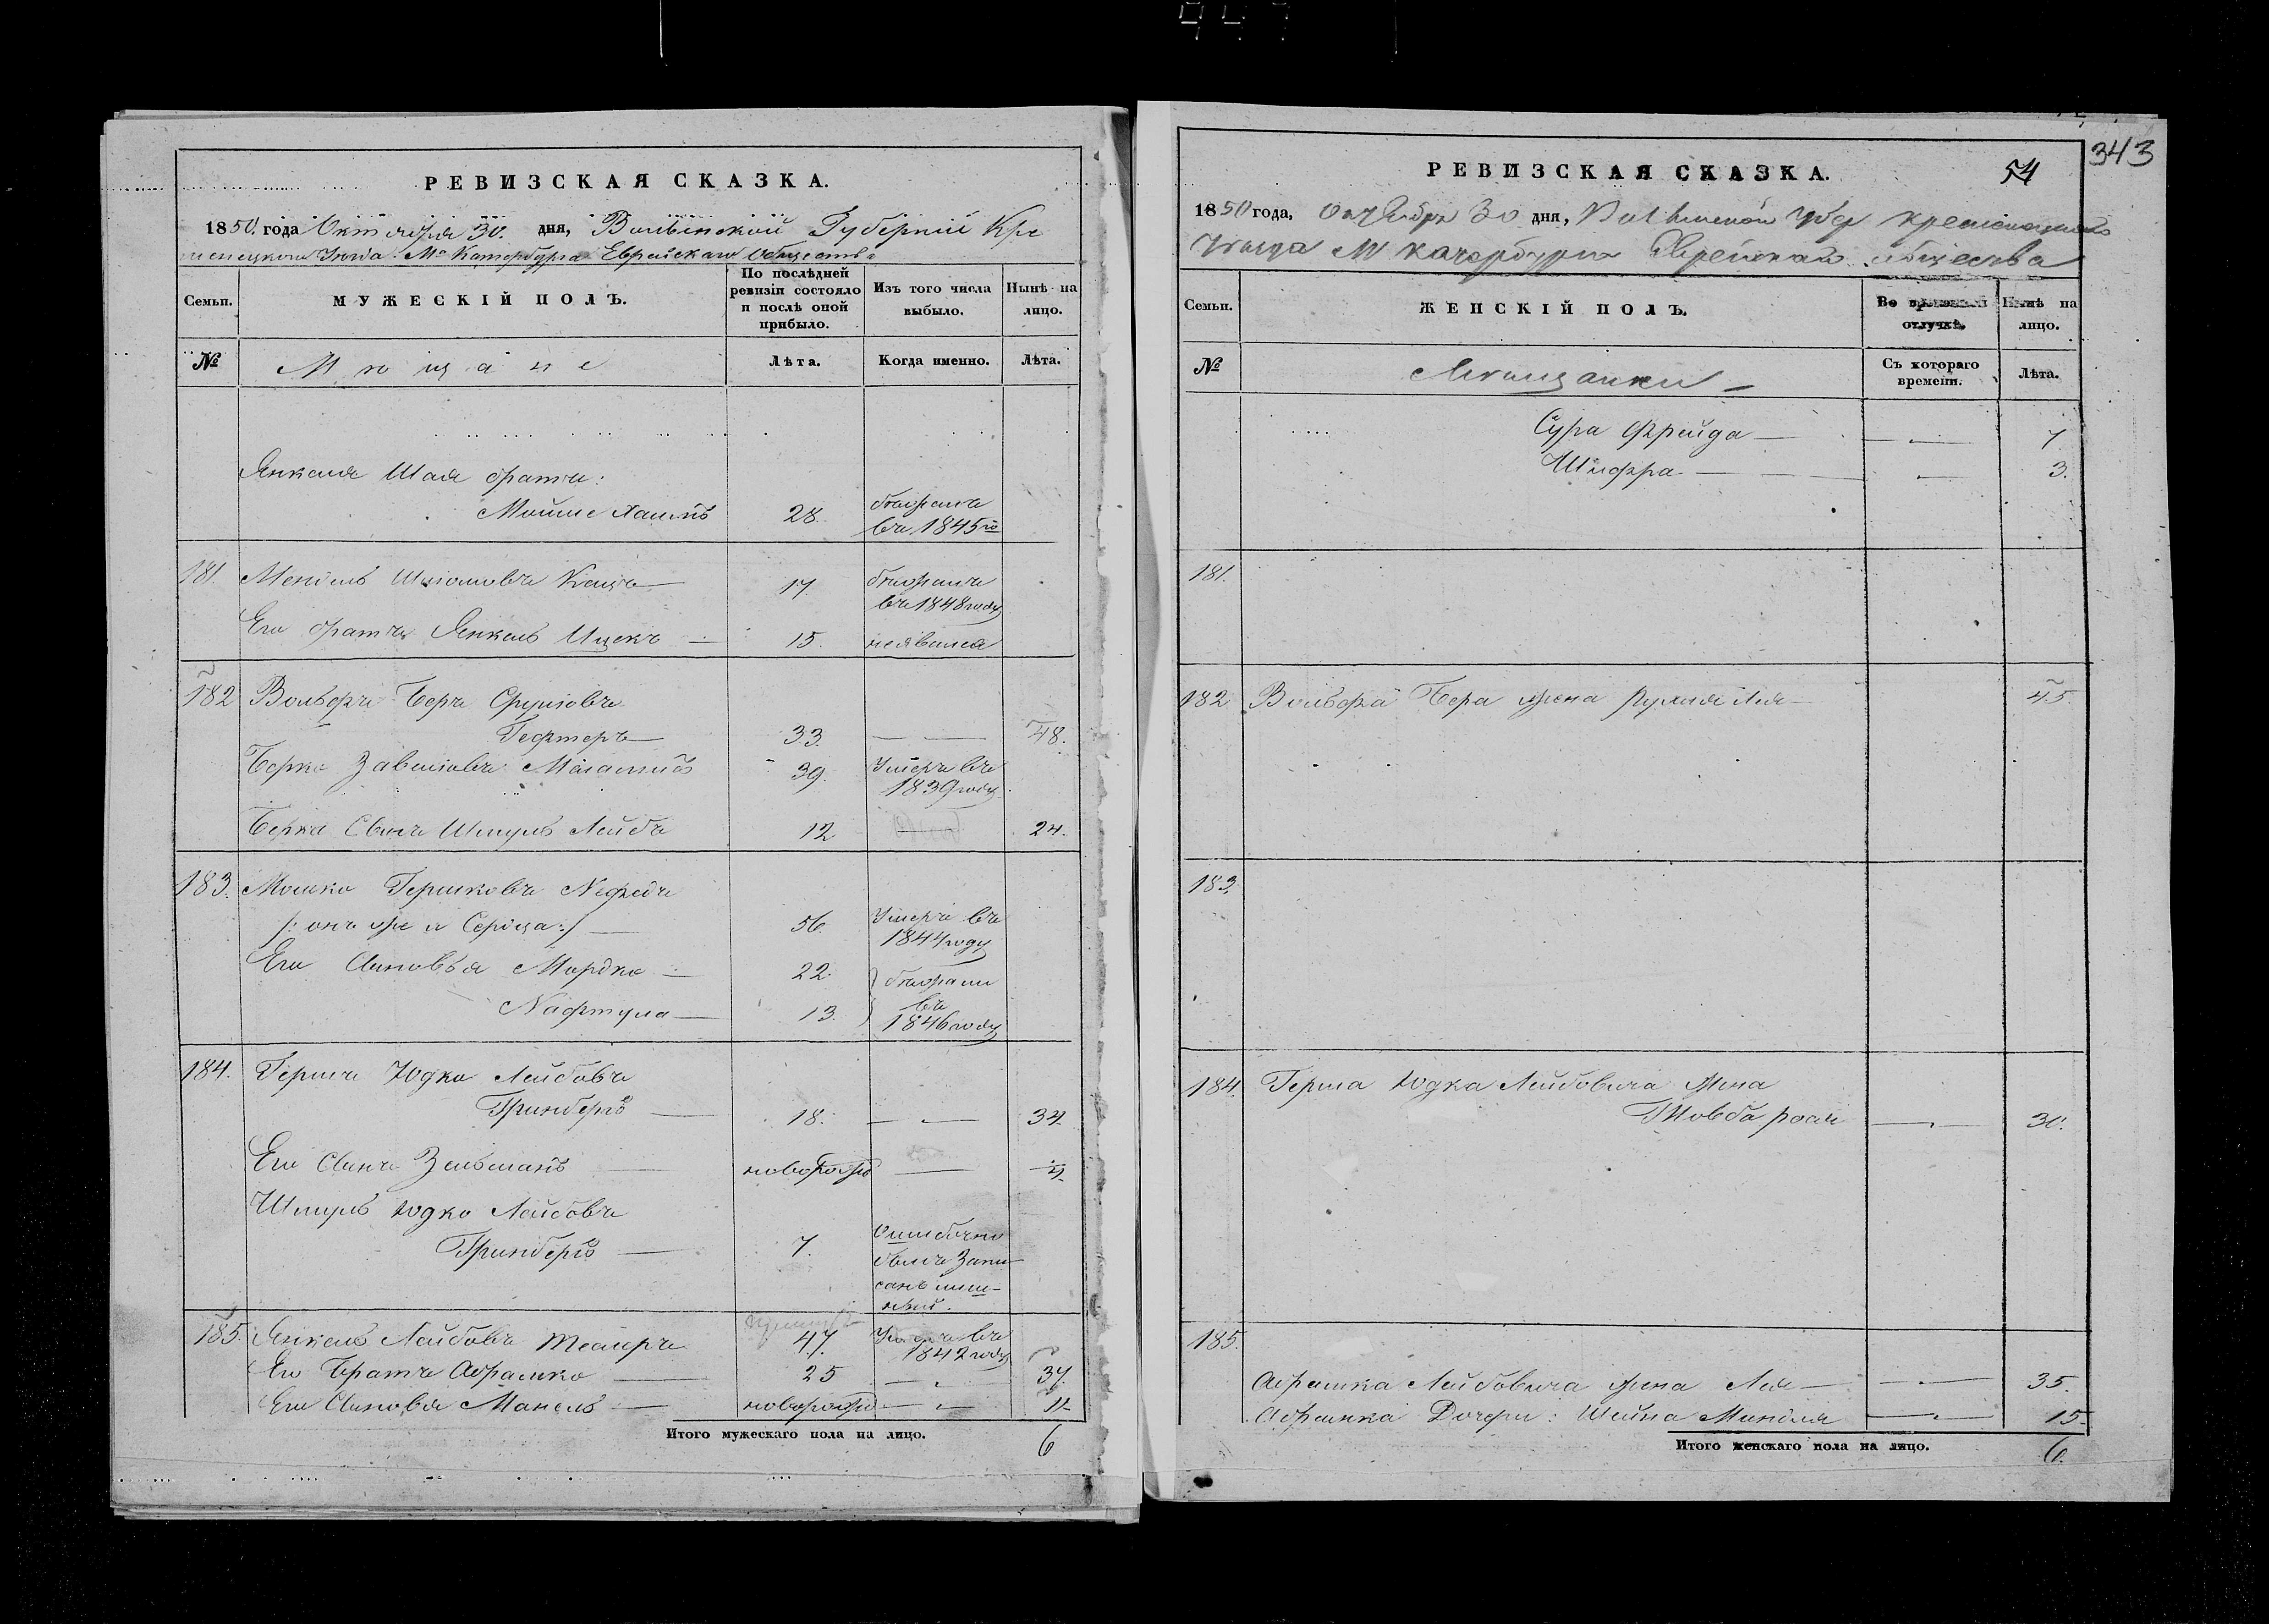 343
РЕВИЗСКАЯ СКАЗКА.
1850. года Октября 30. дня, Волынской Губерніи Кре
менецкого Уезда Мᵃ Катербурга Еврейскаго Общества
Семьи.
МУЖЕСКІЙ ПОЛЪ.
По послѣдней
ревизіи состояло
и послѣ оной
прибыло.
Изъ того числа
выбыло.
Нынѣ на
лицо.
№
Мѣщане
Лѣта.
Когда именно.
Лѣта.
Янкеля Шая братъ:
Мошко Хаимъ 28. бѣжалъ
въ 1845го
181. Мендель Шлiомовъ 17. бѣжалъ
въ 1848 году
Его братъ Янкель Ицекъ — 15. неявился
182 Вольфъ Беръ Сруловъ
Гефтеръ — 33. — 48.
Берко Завелiовъ Маламидъ 39. Умеръ въ
1839 году
Берка Сынъ Шмуль Лейбъ 12 — 24.
183. Мошко Гершковъ
/: онъ же и Середа :/ — 56. Умеръ въ
1844 году
Его Сыновья Мордко — 22. бѣжали
Нафтула — 13. въ
1846 году
184. Гершъ Юдко Лейбовъ
Гринбергъ — 18. — 34.
Его Сынъ Зельманъ — новорожд — 4.
Шмуль Юдко Лейбовъ
Гринбергъ — 7. Ошибочно
былъ Запи-
санъ лиш-
ний.
185. Янкель Лейбовъ 47. Умеръ въ
1842 году
Его Братъ Абрамко — 25 — 37.
Его Сыновья Манель — новорожд — 11.
Итого мужескаго пола на лицо.
6
РЕВИЗСКАЯ СКАЗКА.
54
1850 года, Октября 30 дня, Волынской Губер Кременецкаго
Уезда М Катербурга Еврейскаго общества
Семьи.
ЖЕНСКІЙ ПОЛЪ.
Во временной
отлучкѣ.
Нынѣ на
лицо.
№
Мѣщанки —
Съ котораго
времени.
Лѣта.
Сура Фрейда — — 7.
Шифра — — 3.
181.
182 Вольфа Бера жена Рухля Лея — 45.
183.
184. Герша Юдка Лейбовича жена
Товба рося — 30.
185.
Абрамка Лейбовича жена Лея — — 35.
Абрамка Дочери: Шейна Миндля — 15.
Итого женскаго пола на лицо.
6.